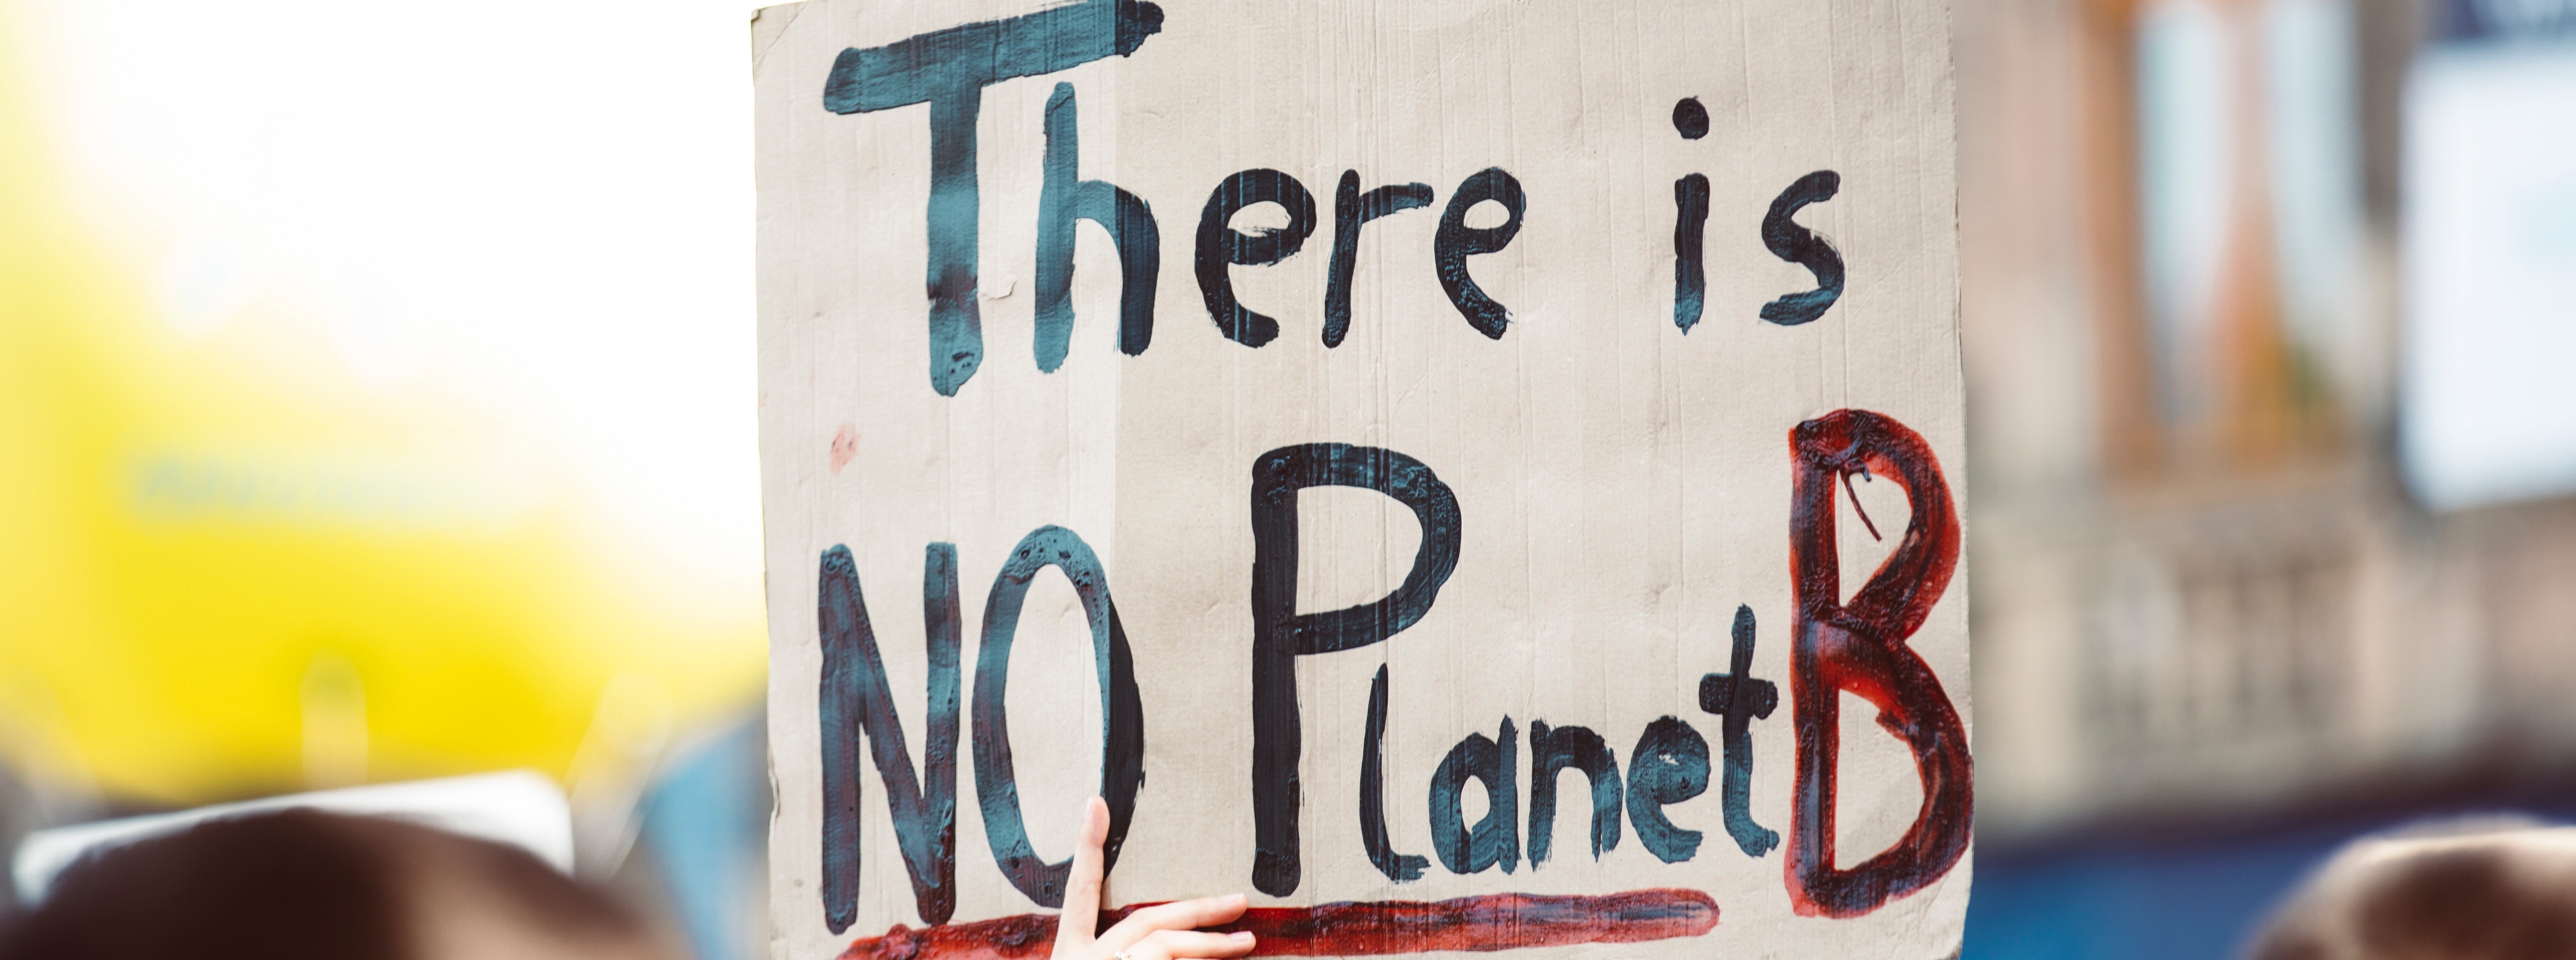 There is
NO Planet B